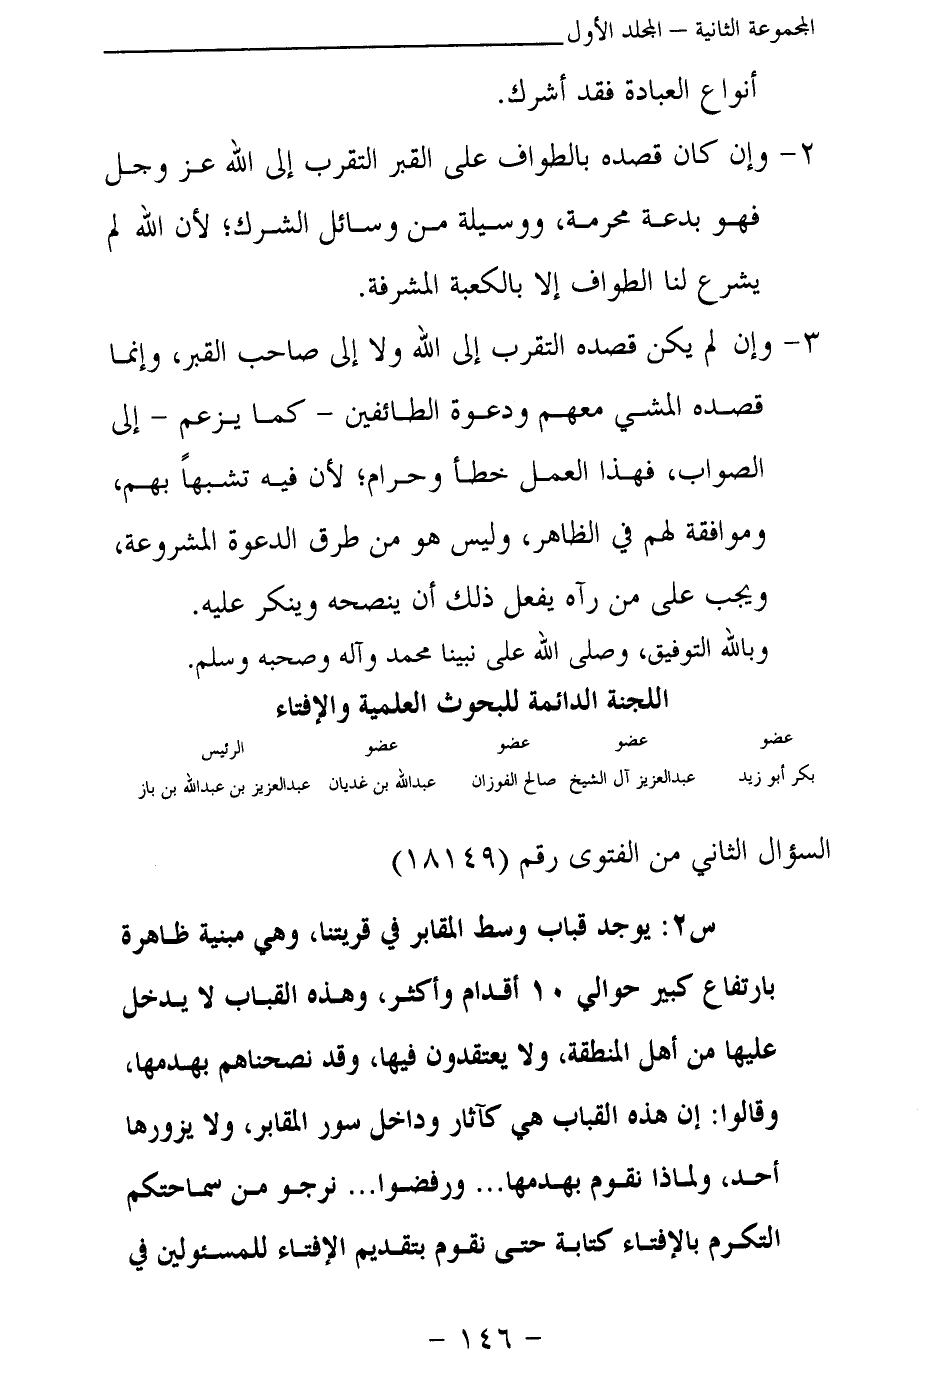 المجموعة الثانية – المجلد الأول
أنواع العبادة فقد أشرك.
٢- وإن كان قصده بالطواف على القبر التقرب إلى الله عز وجل
فهو بدعة محرمة، ووسيلة من وسائل الشرك؛ لأن الله لم
يشرع لنا الطواف إلا بالكعبة المشرفة.
٣- وإن لم يكن قصده التقرب إلى الله ولا إلى صاحب القبر، وإنما
قصده المشي معهم ودعوة الطائفين – كما يزعم – إلى
الصواب، فهذا العمل خطأ وحرام؛ لأن فيه تشبهاً بهم،
وموافقة لهم في الظاهر، وليس هو من طرق الدعوة المشروعة،
ويجب على من رآه يفعل ذلك أن ينصحه وينكر عليه.
وبالله التوفيق، وصلى الله على نبينا محمد وآله وصحبه وسلم.
اللجنة الدائمة للبحوث العلمية والإفتاء
عضو عضو عضو عضو الرئيس
بكر أبو زيد عبدالعزيز آل الشيخ صالح الفوزان عبدالله بن غديان عبدالعزيز بن عبدالله بن باز
السؤال الثاني من الفتوى رقم (١٨١٤٩)
س٢: يوجد قباب وسط المقابر في قريتنا، وهي مبنية ظاهرة
بارتفاع كبير حوالي ١٠ أقدام وأكثر، وهذه القباب لا يدخل
عليها من أهل المنطقة، ولا يعتقدون فيها، وقد نصحناهم بهدمها،
وقالوا: إن هذه القباب هي كآثار وداخل سور المقابر، ولا يزورها
أحد، ولماذا نقوم بهدمها... ورفضوا... نرجو من سماحتكم
التكرم بالإفتاء كتابة حتى نقوم بتقديم الإفتاء للمسئولين في
– ١٤٦ –